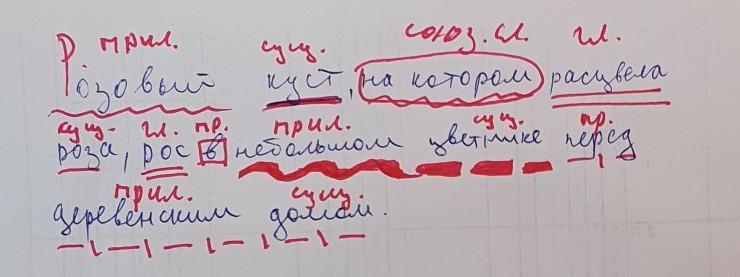 прил. сущ. союз. сл. гл.
Розовый куст, на котором расцвела
сущ. гл. пр. прил. сущ. пр.
роза, рос в небольшом цветнике перед
прил. сущ.
деревенским домом.